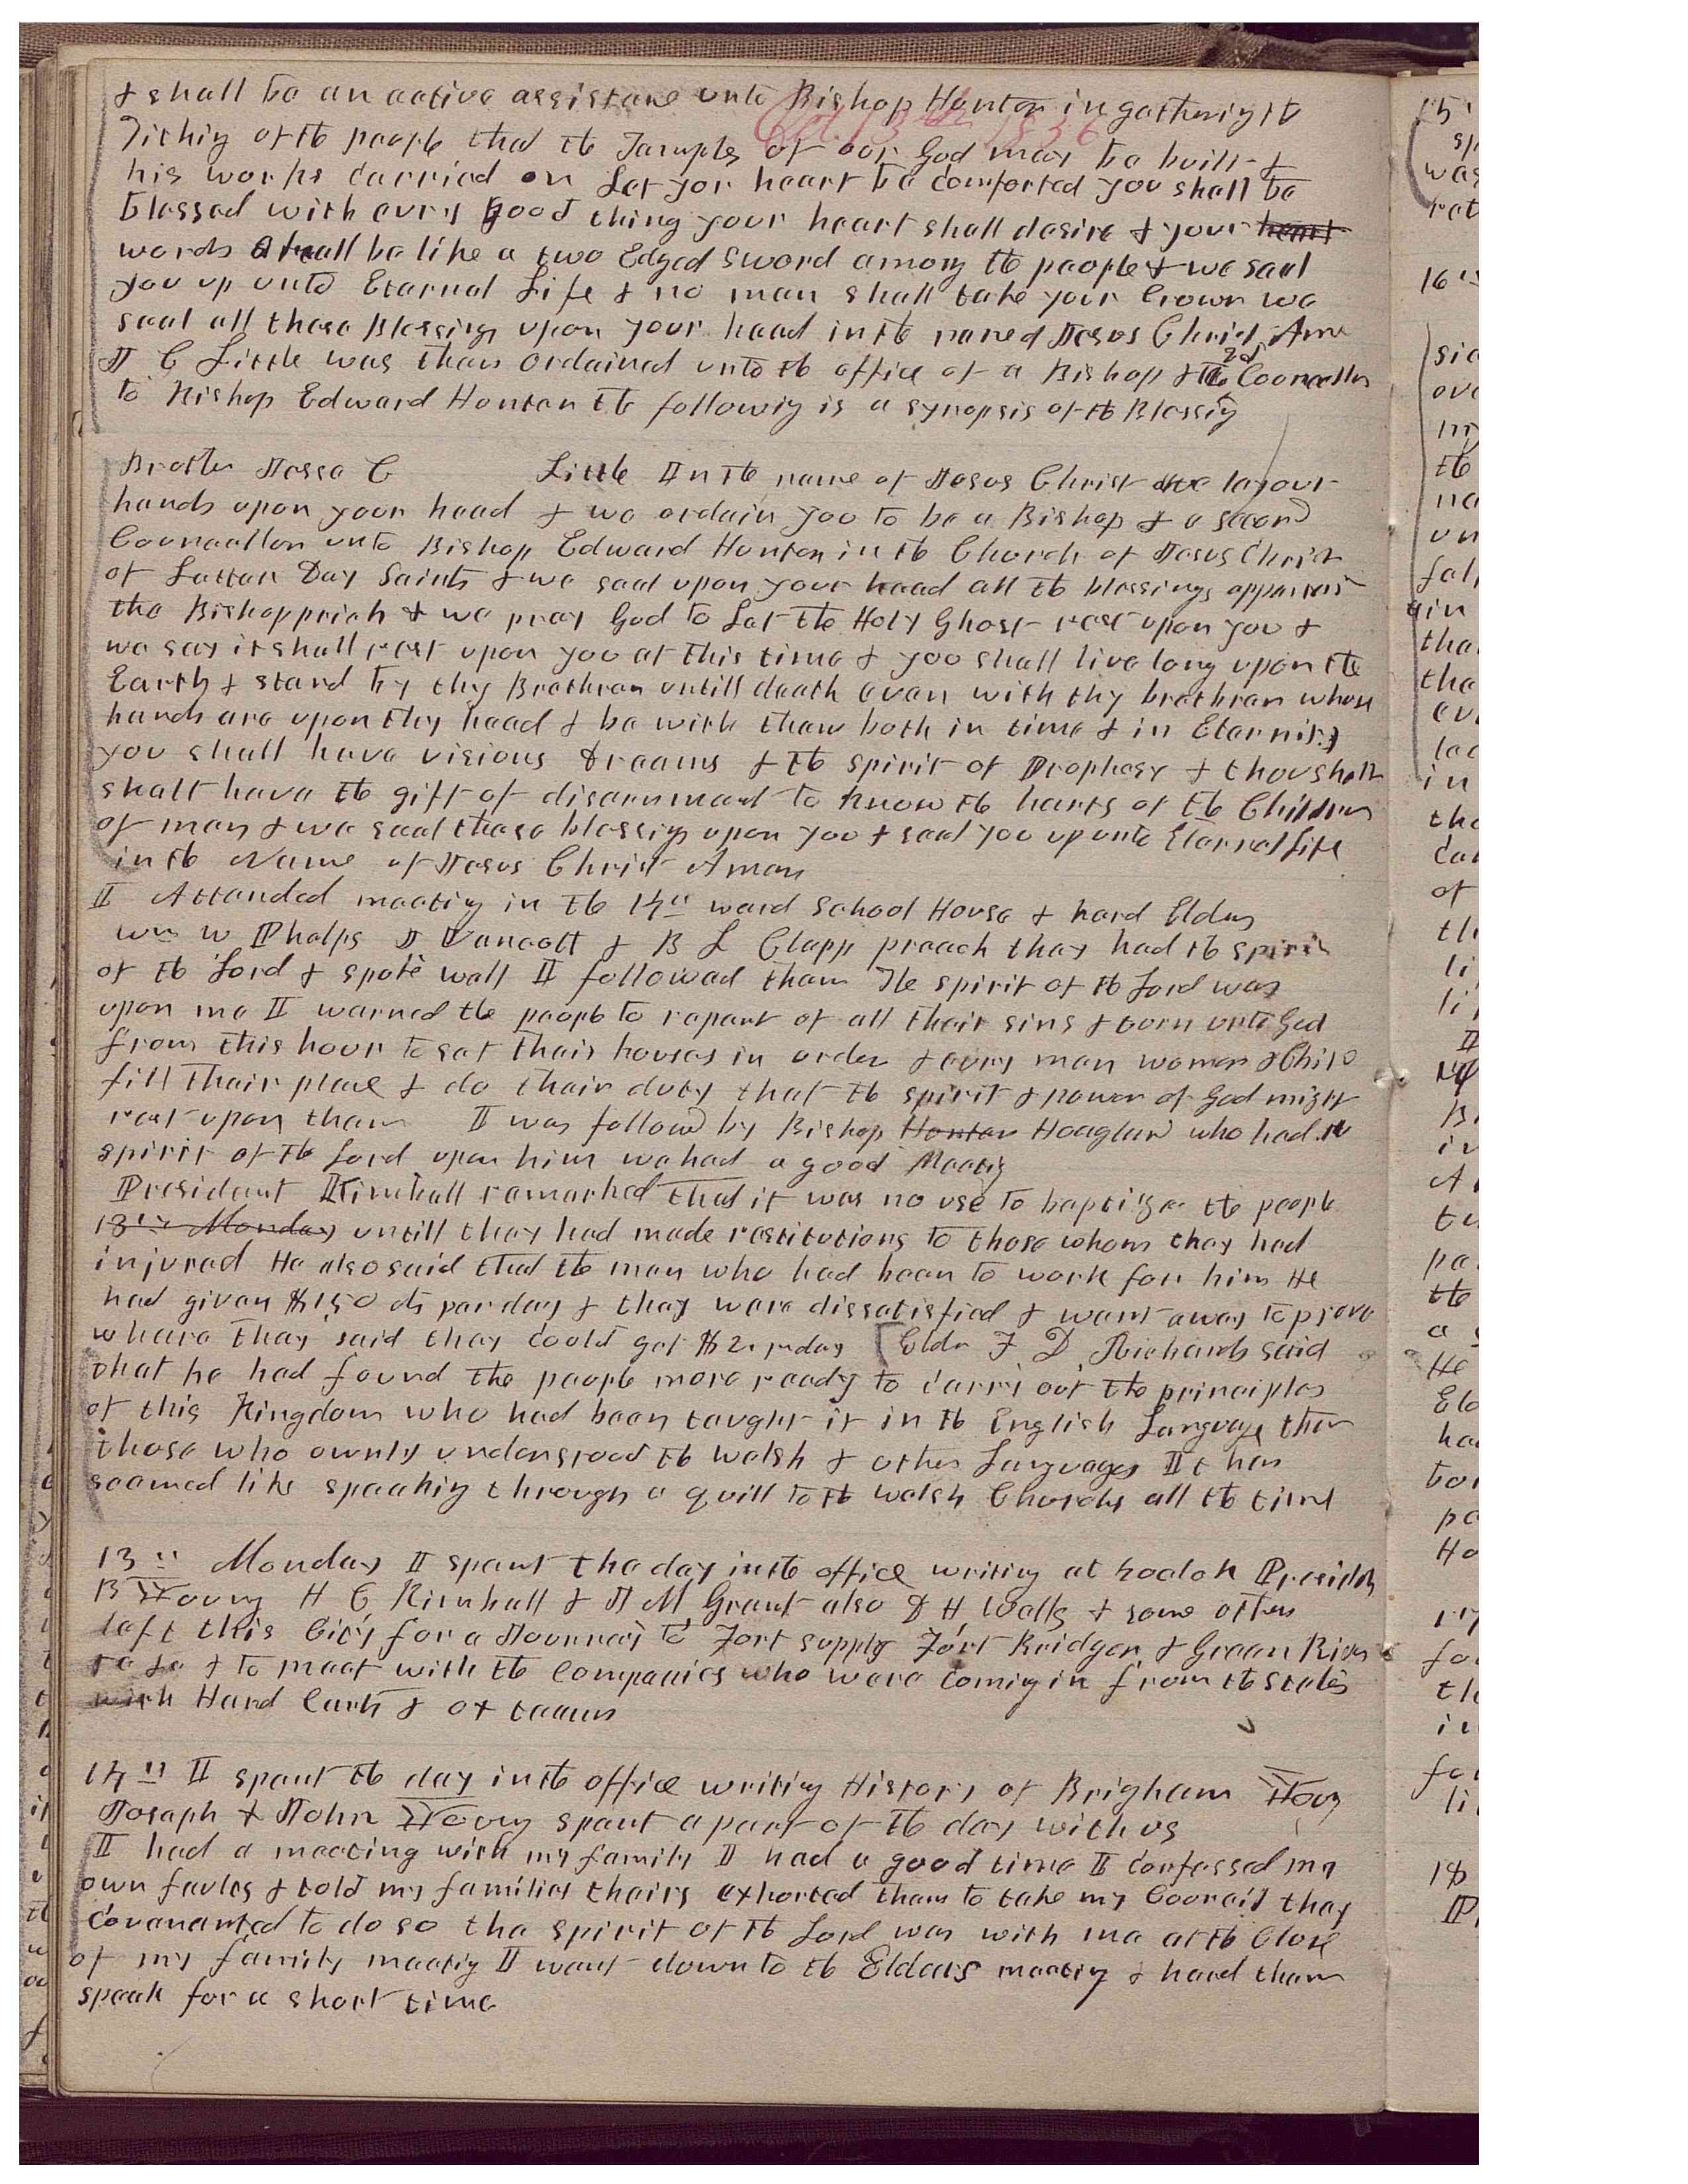 & shall be an active assistane unto Bishop Hunter in gathering the
Oct. 13th 1856
Tithing of the people that the Temples of our God may be built &
his works carried on Let yor heart be comforted you shall be
blessed with evry good thing your heart shall desire & your heart
words shall be like a two Edged Sword among the people & we seal
you up unto Eternal Life & no man shall take your Crown we
seal all these Blessings upon your head in the name of Jesus Christ Ame
J C Little was then ordained unto the office of a Bishop & the 2d Councellor
to Bishop Edward Hunter the following is a synopsis of the Blessing
Brother Jesse C Little In the name of Jesus Christ we lay our
hands upon your head & we ordain you to be a Bishop & a second
Councellor unto Bishop Edward Hunter in the Church of Jesus Christ
of Latter Day Saints & we seal upon your head all the blessings
the Bishopprick & we pray God to Let the Holy Ghost rest upon you &
we say it shall rest upon you at this time & you shall live long upon the
Earth & stand by thy Brethren untill death even with thy brethren whose
hands are upon thy head & be with them both in time & in Eternity
you shall have visions dreams & the spirit of Prophesy & thou shalt
shalt have the gift of discernment to know the harts of the Children
of men & we seal these blessings upon you & seal you up unto Eternal Life
in the Name of Jesus Christ Amen
I Attended meeting in the 14th ward School House & hard Elders
wm W Phelps J Vancott & B L Clapp preach they had the spirit
of the Lord & spoke well I followed them The spirit of the Lord was
upon me I warned the people to repent of all their sins & turn unto God
from this hour to set their houses in order & evry man women & Child
fill their place & do their duty that the spirit & power of God might
rest upon them I was followd by Bishop Hunter Hoagland who had the
spirit of the Lord upon him we had a good Meeting
President Kimball remarked that it was no use to baptize the people
13th Monday untill they had made restitutions to those whom they had
injured He also said that the men who had been to work for him He
had given $150 cts per day & they were dissatisfied & went away to prove
where they said they could get $2. per day [Elder F D Richards said
that he had found the people more ready to carry out the principles
of this Kingdom who had been taught it in the English Language then
those who ownly understood the Welsh & other Languages It has
seemed like speaking through a quill to the Welsh Churches all the time
13th Monday I spent the day in the office writing at 2 oclok Presidets
B Young H C Kimball & J M Grant also D H Wells & some others
left this City for a Journey to Fort Supply Fort Bridger & Green River
& to meet with the Companies who were coming in from the States
with Hand Carts & ox teams
14th I spent the day in the office writing History of Brigham Young
Joseph & John Young spent a part of the day with us
I had a meeting with my family I had a good time I confessed my
own faults & told my families theirs exhorted them to take my Councel they
covenanted to do so the spirit of the Lord was with me at the Close
of my family meeting I went down to the Elders meeting & heard them
speak for a short time